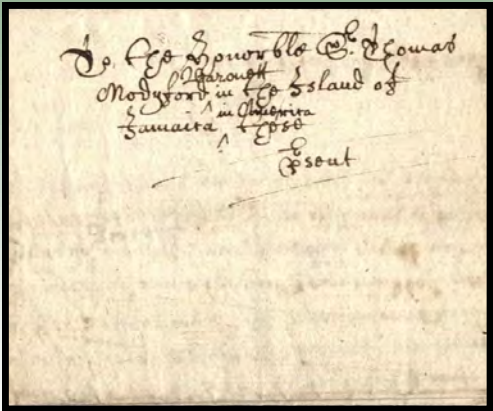 To the Honorble Sr. Thomas
Modyford Baronett in the Island of
Jamaica in America these
Psent